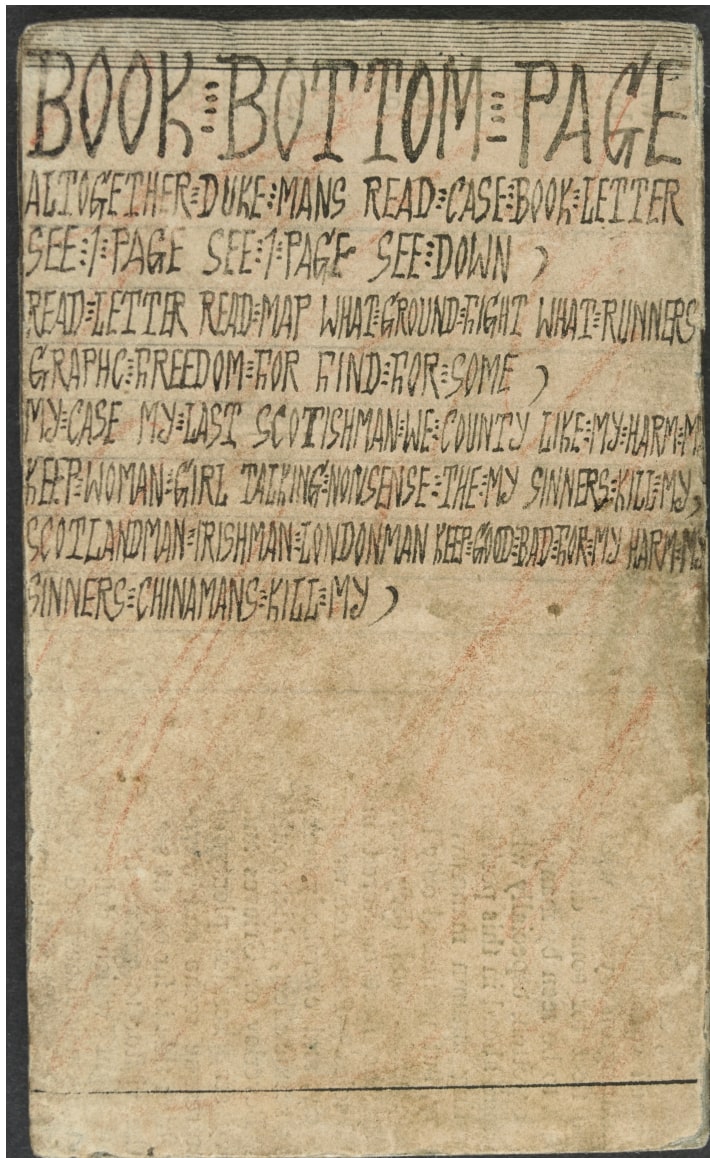 BOOK⋮BOTTOM⋮PAGE
ALTOGETHER⋮DUKE⋮MANS READ⋮CASE⋮BOOK⋮LETTER
SEE⋮1⋮PAGE SEE⋮1⋮PAGE SEE⋮DOWN )
READ⋮LETTER READ⋮MAP WHAT⋮GROUND⋮FIGHT WHAT⋮RUNNERS
GRAPHC⋮FREEDOM⋮FOR FIND⋮FOR⋮SOME )
MY⋮CASE MY⋮LAST SCOTISHMAN⋮WE⋮COUNTY LIKE⋮MY⋮HARM⋮M
KEEP⋮WOMAN⋮GIRL TALKING⋮NONSENSE⋮THE⋮MY SINNERS⋮KILL⋮MY )
SCOTLANDMAN⋮IRISHMAN⋮LONDONMAN KEEP⋮GOOD⋮BAD⋮FOR⋮MY HARM⋮MY
SINNERS⋮CHINAMANS⋮KILL⋮MY )